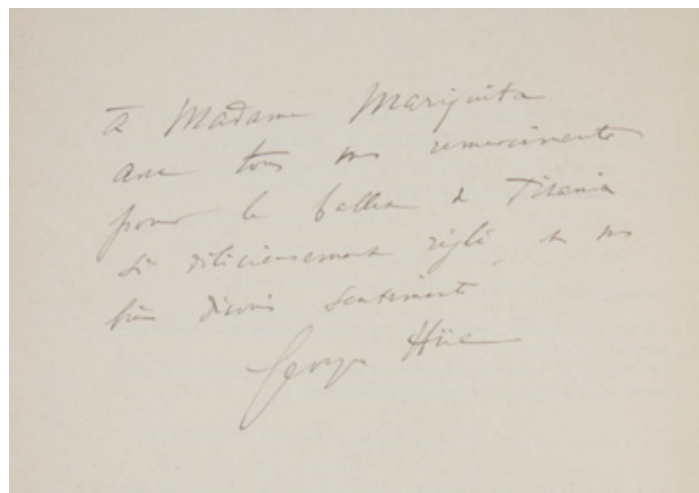 à Madame Mariquita
avec tous mes remerciements
pour le ballet de Titania
si délicieusement réglé, et mes
bien dévoués sentiments
Georges Hüe